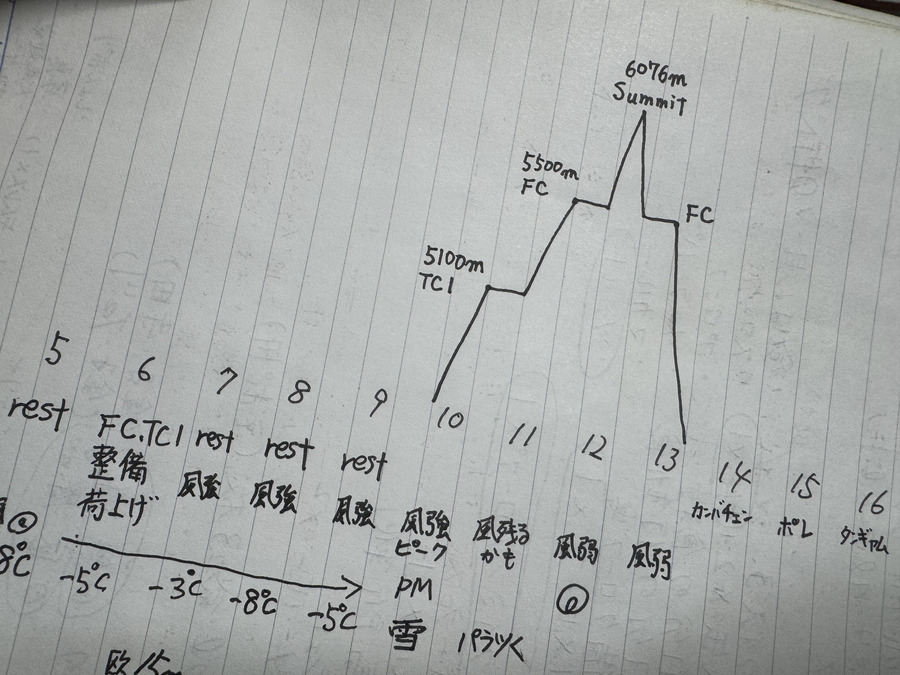 6076m
Summit
5500m
FC
FC
5100m
TC1
5 6 7 8 9 10 11 12 13 14 15 16
rest
FC.TC1
整備
荷上げ
rest
風強
rest
風強
rest
風強
風強
ピーク
PM
雪
風残る
かも
パラつく
風弱
風弱
カンバチェン
ポレ
-8℃
-5℃
-3℃
-8℃
-5℃